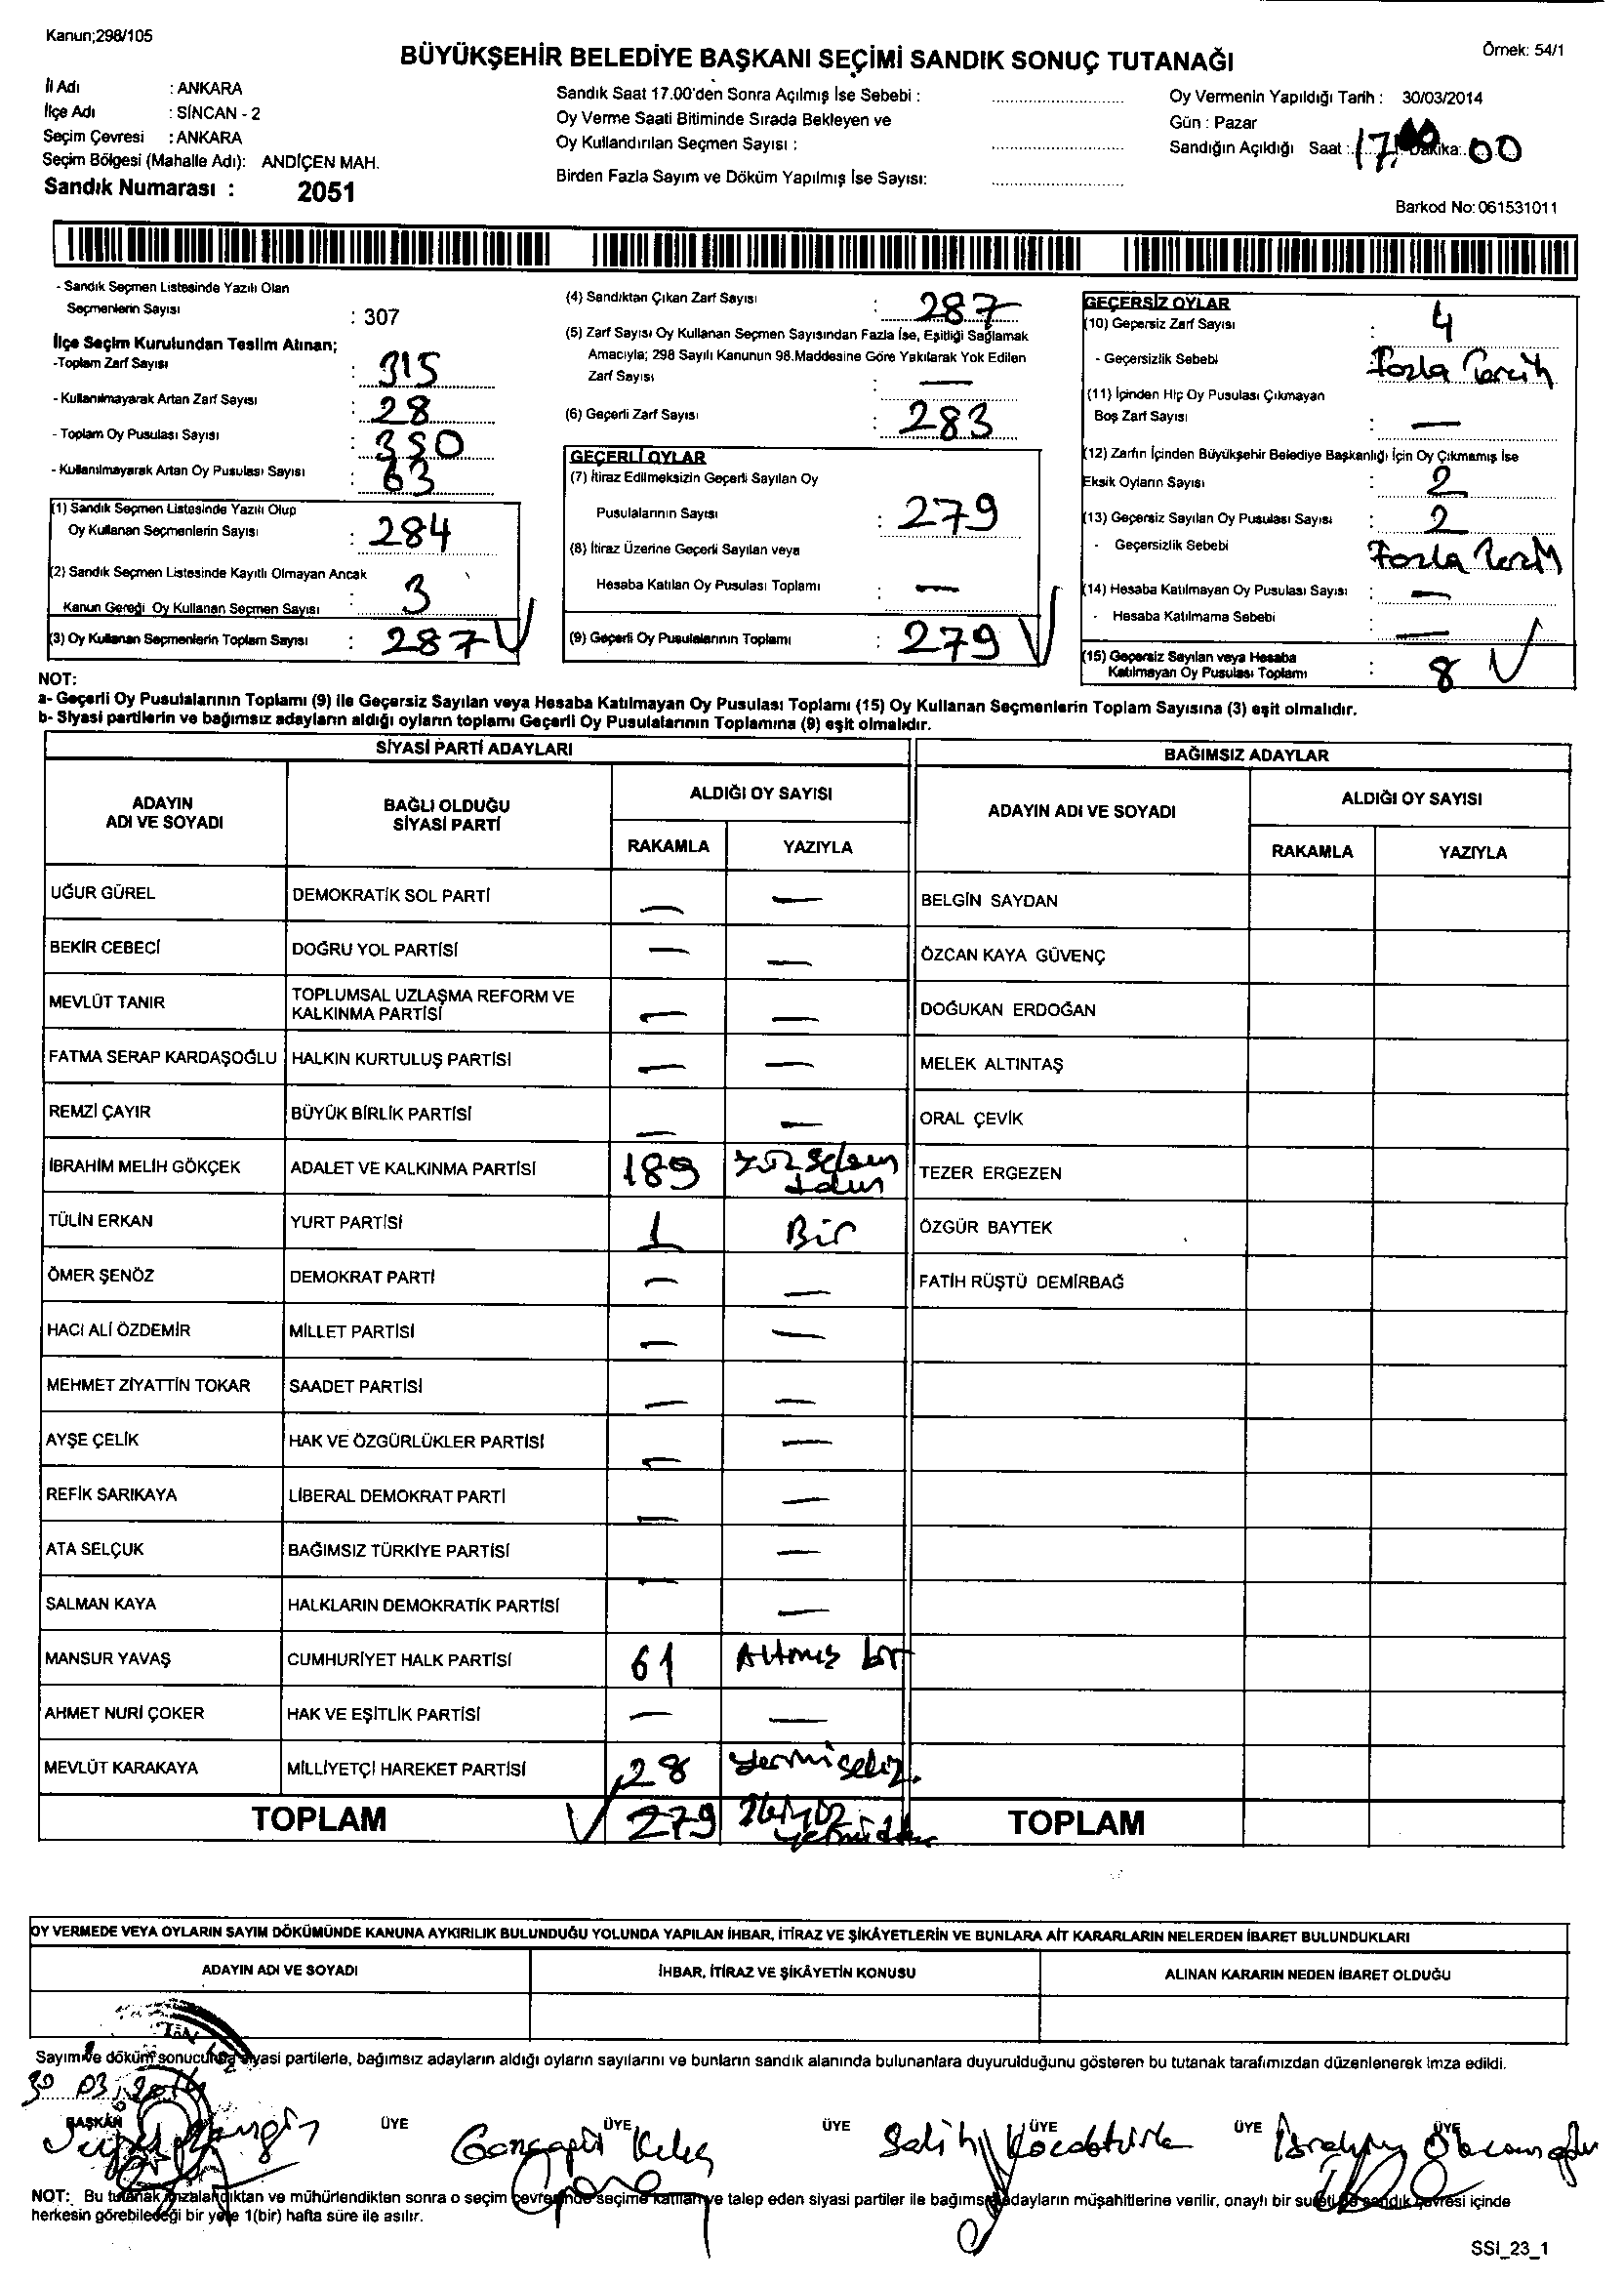 Kanun;298/105
Örnek: 54/1
BÜYÜKŞEHİR BELEDİYE BAŞKANI SEÇİMİ SANDIK SONUÇ TUTANAĞI
İl Adı : ANKARA
İlçe Adı : SİNCAN - 2
Seçim Çevresi : ANKARA
Seçim Bölgesi (Mahalle Adı): ANDİÇEN MAH.
Sandık Numarası : 2051
Sandık Saat 17.00'den Sonra Açılmış İse Sebebi :
Oy Verme Saati Bitiminde Sırada Bekleyen ve
Oy Kullandırılan Seçmen Sayısı :
Birden Fazla Sayım ve Döküm Yapılmış İse Sayısı:
Oy Vermenin Yapıldığı Tarih : 30/03/2014
Gün : Pazar
Sandığın Açıldığı Saat : 17 Dakika: 00
Barkod No: 061531011
- Sandık Seçmen Listesinde Yazılı Olan
Seçmenlerin Sayısı : 307
İlçe Seçim Kurulundan Teslim Alınan;
-Toplam Zarf Sayısı : 315
- Kullanılmayarak Artan Zarf Sayısı : 28
- Toplam Oy Pusulası Sayısı : 350
- Kullanılmayarak Artan Oy Pusulası Sayısı : 63
(1) Sandık Seçmen Listesinde Yazılı Olup
Oy Kullanan Seçmenlerin Sayısı : 284
(2) Sandık Seçmen Listesinde Kayıtlı Olmayan Ancak
Kanun Gereği Oy Kullanan Seçmen Sayısı : 3
(3) Oy Kullanan Seçmenlerin Toplam Sayısı : 287
(4) Sandıktan Çıkan Zarf Sayısı : 287
(5) Zarf Sayısı Oy Kullanan Seçmen Sayısından Fazla İse, Eşitliği Sağlamak
Amacıyla; 298 Sayılı Kanunun 98.Maddesine Göre Yakılarak Yok Edilen
Zarf Sayısı : —
(6) Geçerli Zarf Sayısı : 283
GEÇERLİ OYLAR
(7) İtiraz Edilmeksizin Geçerli Sayılan Oy
Pusulalarının Sayısı : 279
(8) İtiraz Üzerine Geçerli Sayılan veya
Hesaba Katılan Oy Pusulası Toplamı : —
(9) Geçerli Oy Pusulalarının Toplamı : 279
GEÇERSİZ OYLAR
(10) Geçersiz Zarf Sayısı : 4
- Geçersizlik Sebebi : Fazla Tercih
(11) İçinden Hiç Oy Pusulası Çıkmayan
Boş Zarf Sayısı : —
(12) Zarfın İçinden Büyükşehir Belediye Başkanlığı İçin Oy Çıkmamış İse
Eksik Oyların Sayısı : 2
(13) Geçersiz Sayılan Oy Pusulası Sayısı : 2
- Geçersizlik Sebebi Fazla
(14) Hesaba Katılmayan Oy Pusulası Sayısı : —
- Hesaba Katılmama Sebebi : —
(15) Geçersiz Sayılan veya Hesaba
Katılmayan Oy Pusulası Toplamı : 8
NOT:
a- Geçerli Oy Pusulalarının Toplamı (9) ile Geçersiz Sayılan veya Hesaba Katılmayan Oy Pusulası Toplamı (15) Oy Kullanan Seçmenlerin Toplam Sayısına (3) eşit olmalıdır.
b- Siyasi partilerin ve bağımsız adayların aldığı oyların toplamı Geçerli Oy Pusulalarının Toplamına (9) eşit olmalıdır.
SİYASİ PARTİ ADAYLARI
BAĞIMSIZ ADAYLAR
ADAYIN ADI VE SOYADI
BAĞLI OLDUĞU SİYASİ PARTİ
ALDIĞI OY SAYISI
RAKAMLA YAZIYLA
ADAYIN ADI VE SOYADI
ALDIĞI OY SAYISI
RAKAMLA YAZIYLA
UĞUR GÜREL DEMOKRATİK SOL PARTİ — — BELGİN SAYDAN
BEKİR CEBECİ DOĞRU YOL PARTİSİ — — ÖZCAN KAYA GÜVENÇ
MEVLÜT TANIR TOPLUMSAL UZLAŞMA REFORM VE KALKINMA PARTİSİ — — DOĞUKAN ERDOĞAN
FATMA SERAP KARDAŞOĞLU HALKIN KURTULUŞ PARTİSİ — — MELEK ALTINTAŞ
REMZİ ÇAYIR BÜYÜK BİRLİK PARTİSİ — — ORAL ÇEVİK
İBRAHİM MELİH GÖKÇEK ADALET VE KALKINMA PARTİSİ 189 TEZER ERGEZEN
TÜLİN ERKAN YURT PARTİSİ 1 Bir ÖZGÜR BAYTEK
ÖMER ŞENÖZ DEMOKRAT PARTİ — — FATİH RÜŞTÜ DEMİRBAĞ
HACI ALİ ÖZDEMİR MİLLET PARTİSİ — —
MEHMET ZİYATTİN TOKAR SAADET PARTİSİ — —
AYŞE ÇELİK HAK VE ÖZGÜRLÜKLER PARTİSİ — —
REFİK SARIKAYA LİBERAL DEMOKRAT PARTİ — —
ATA SELÇUK BAĞIMSIZ TÜRKİYE PARTİSİ — —
SALMAN KAYA HALKLARIN DEMOKRATİK PARTİSİ —
MANSUR YAVAŞ CUMHURİYET HALK PARTİSİ 61 Altmış bir
AHMET NURİ ÇOKER HAK VE EŞİTLİK PARTİSİ — —
MEVLÜT KARAKAYA MİLLİYETÇİ HAREKET PARTİSİ 28
TOPLAM 279 TOPLAM
OY VERMEDE VEYA OYLARIN SAYIM DÖKÜMÜNDE KANUNA AYKIRILIK BULUNDUĞU YOLUNDA YAPILAN İHBAR, İTİRAZ VE ŞİKÂYETLERİN VE BUNLARA AİT KARARLARIN NELERDEN İBARET BULUNDUKLARI
ADAYIN ADI VE SOYADI İHBAR, İTİRAZ VE ŞİKÂYETİN KONUSU ALINAN KARARIN NEDEN İBARET OLDUĞU
Sayım ve döküm sonucunda siyasi partilerle, bağımsız adayların aldığı oyların sayılarını ve bunların sandık alanında bulunanlara duyurulduğunu gösteren bu tutanak tarafımızdan düzenlenerek imza edildi.
30 03 2014
BAŞKAN ÜYE ÜYE ÜYE ÜYE ÜYE ÜYE
Salih
NOT: Bu tutanak imzalandıktan ve mühürlendikten sonra o seçim çevresinde seçime katılan ve talep eden siyasi partiler ile bağımsız adayların müşahitlerine verilir, onaylı bir sureti de sandık çevresi içinde
herkesin görebileceği bir yere 1(bir) hafta süre ile asılır.
SSİ_23_1